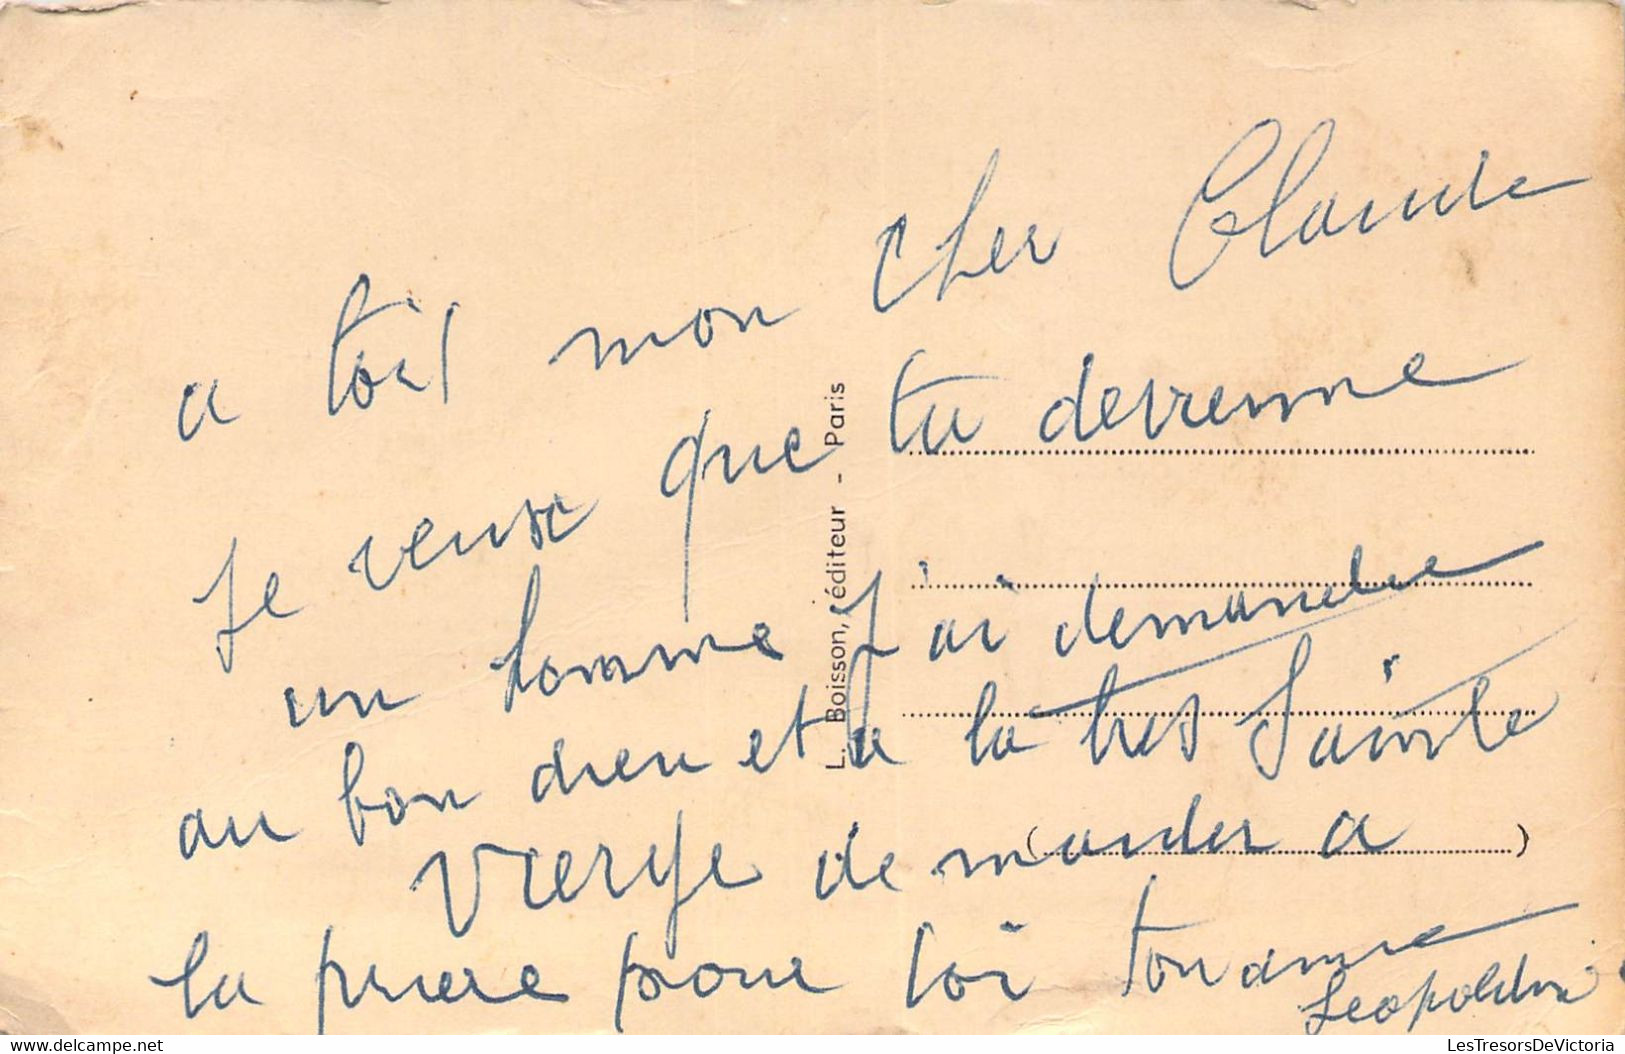 a toit mon cher Claude
Je veux que tu devienne
un homme J'ai demandée
au bon dieu et a la tres Sainte
Vierge demander a
la priere pour toi ton amie
Leopoldine
L. Boisson, éditeur - Paris
delcampe.net
LesTresorsDeVictoria